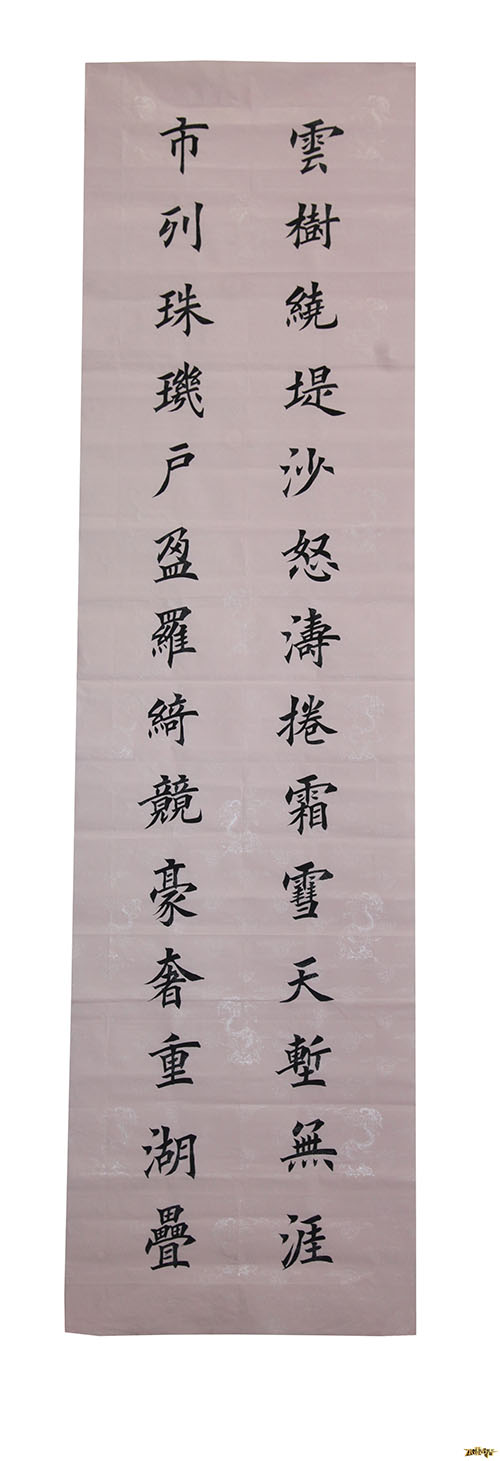 雲樹繞堤沙怒濤捲霜雪天塹無涯
市列珠璣戶盈羅綺競豪奢重湖疊